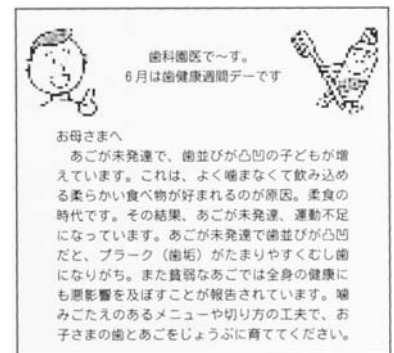 歯科園医で〜す。
6月は歯健康週間デーです
お母さまへ
あごが未発達で、歯並びが凸凹の子どもが増
えています。これは、よく噛まなくて飲み込め
る柔らかい食べ物が好まれるのが原因。柔食の
時代です。その結果、あごが未発達、運動不足
になっています。あごが未発達で歯並びが凸凹
だと、プラーク（歯垢）がたまりやすくむし歯
になりがち。また貧弱なあごでは全身の健康に
も悪影響を及ぼすことが報告されています。噛
みごたえのあるメニューや切り方の工夫で、お
子さまの歯とあごをじょうぶに育ててください。